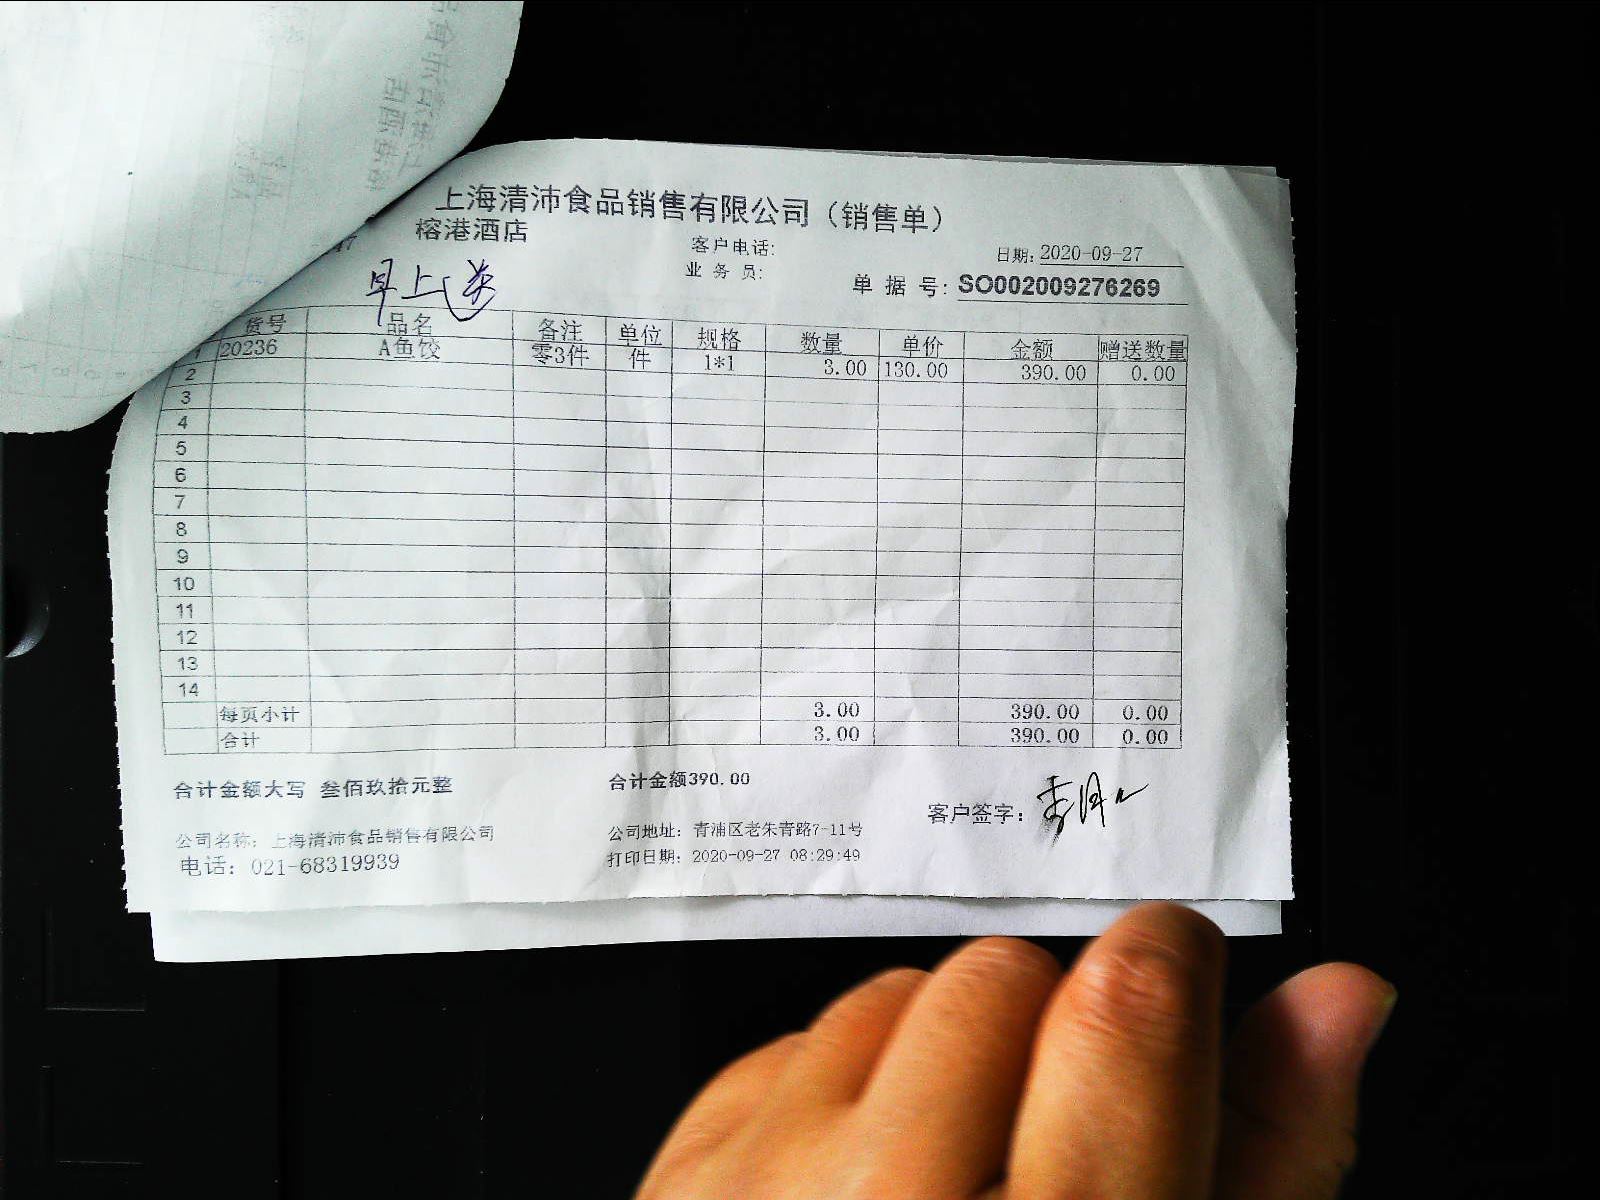 上海清沛食品销售有限公司（销售单）
榕港酒店
客户电话:
日期: 2020-09-27
业 务 员:
单 据 号: SO002009276269
早上送
货号 品名 备注 单位 规格 数量 单价 金额 赠送数量
1 20236 A鱼饺 零3件 件 1*1 3.00 130.00 390.00 0.00
2
3
4
5
6
7
8
9
10
11
12
13
14
每页小计 3.00 390.00 0.00
合计 3.00 390.00 0.00
合计金额大写 叁佰玖拾元整 合计金额390.00
客户签字:
公司名称: 上海清沛食品销售有限公司 公司地址: 青浦区老朱青路7-11号
电话: 021-68319939 打印日期: 2020-09-27 08:29:49